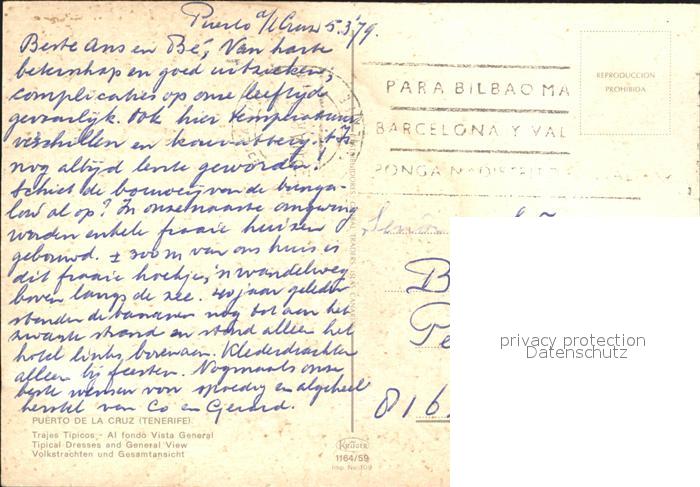 Puerto d/l Cruz 5.3.'79.
Beste Ans en Bé, Van harte
beterschap en goed uitzieken,
complicaties op onze leeftijd
gevaarlijk. Ook hier temperatuur
verschillen en
nog altijd lente geworden!
Schiet de bouwerij van de bunga-
low al op? In onze naaste omgeving
worden enkele fraaie huizen
gebouwd. ± 300 m van ons huis is
dit fraaie hoekje, 'n wandelweg
boven langs de zee. 40 jaar geleden
stonden de bananen nog tot aan het
zwarte strand en stond alleen het
hotel links bovenaan. Klederdrachten
alleen bij feesten. Nogmaals onze
beste wensen voor spoedig en algeheel
herstel van Co en Gerard.
PUERTO DE LA CRUZ (TENERIFE)
Trajes Tipicos - Al fondo Vista General
Tipical Dresses and General View
Volkstrachten und Gesamtansicht
PARA BILBAO MA
BARCELONA Y VAL
PONGA
REPRODUCCION
PROHIBIDA
B
Pe
816
KRÜGER
1164/59
Imp. No 109
privacy protection
Datenschutz